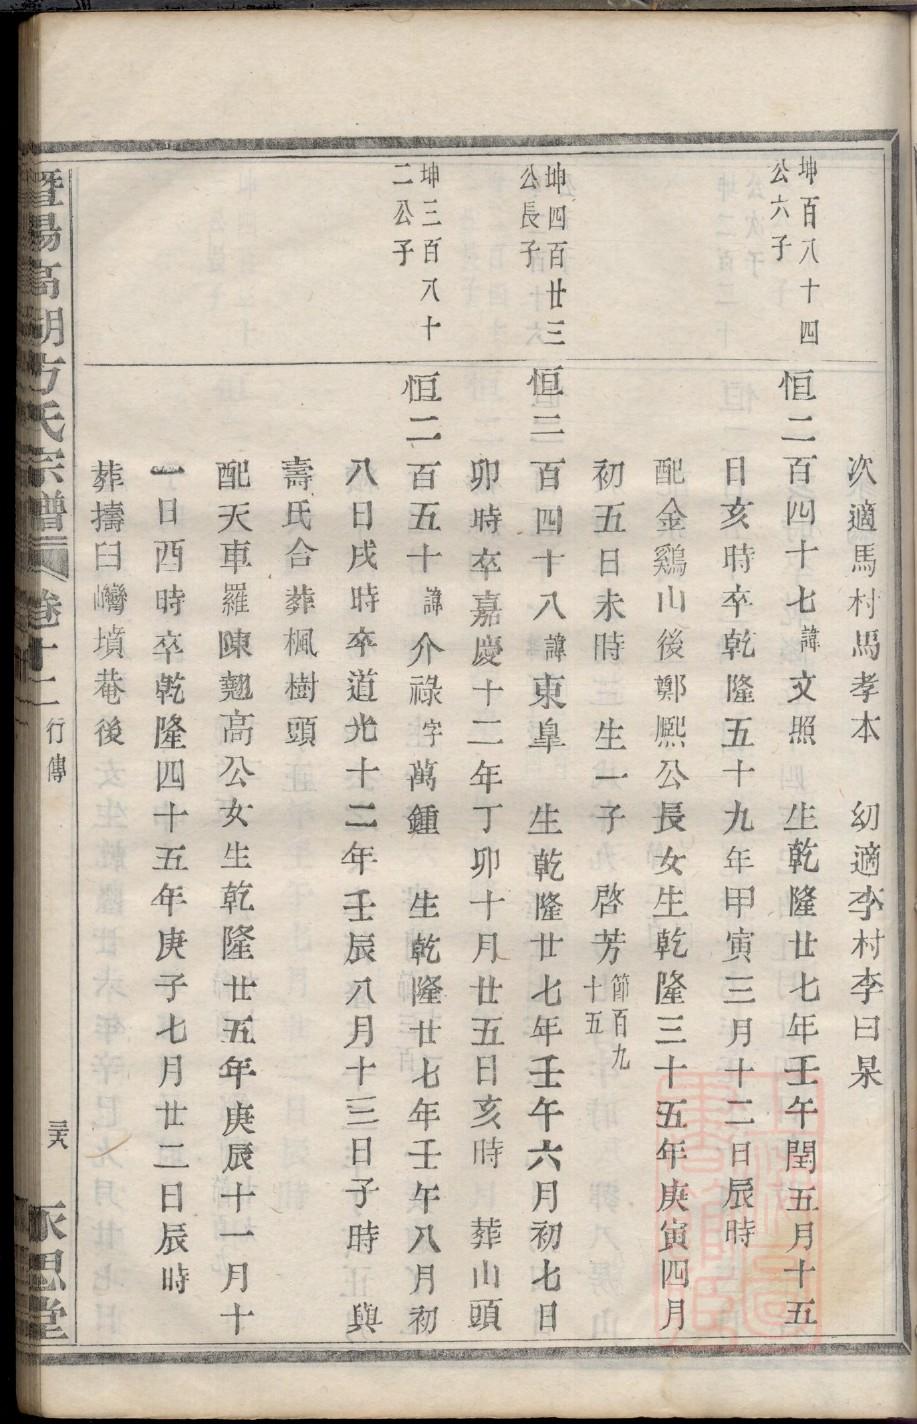 次適馬村馬孝本　幼適李村李曰杲
坤百八十四
公六子
恒二百四十七諱文照　生乾隆廿七年壬午閏五月十五
日亥時卒乾隆五十九年甲寅三月十二日辰時
配金鷄山後鄭熈公長女生乾隆三十五年庚寅四月
初五日未時　生一子　啓芳節百九十五
坤四百廿三
公長子
恒二百四十八諱東臯　生乾隆廿七年壬午六月初七日
卯時卒嘉慶十二年丁卯十月廿五日亥時　葬山頭
坤三百八十
二公子
恒二百五十諱介祿字萬鍾　生乾隆廿七年壬午八月初
八日戌時卒道光十二年壬辰八月十三日子時　與
壽氏合葬楓樹頭
配天車羅陳翹高公女生乾隆廿五年庚辰十一月十
一日酉時卒乾隆四十五年庚子七月廿二日辰時
葬擣臼巒墳菴後
暨陽高湖方氏宗譜　卷十二　行傳　三十六　永思堂